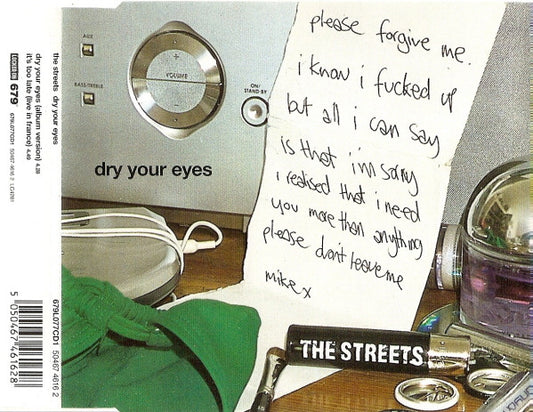 the streets  dry your eyes
dry your eyes (album version) 4.39
it's too late (live in france) 4.49
LOCKED ON
679
679L077CD1
50467 4616 2
5 050467 461628
679L077CD1 50467 4616 2
AUX
BASS/TREBLE
VOLUME
ON/
STAND-BY
dry your eyes
please forgive me.
i know i fucked up
but all i can say
is that i'm sorry
i realised that i need
you more than anything
please don't leave me
mike x
THE STREETS